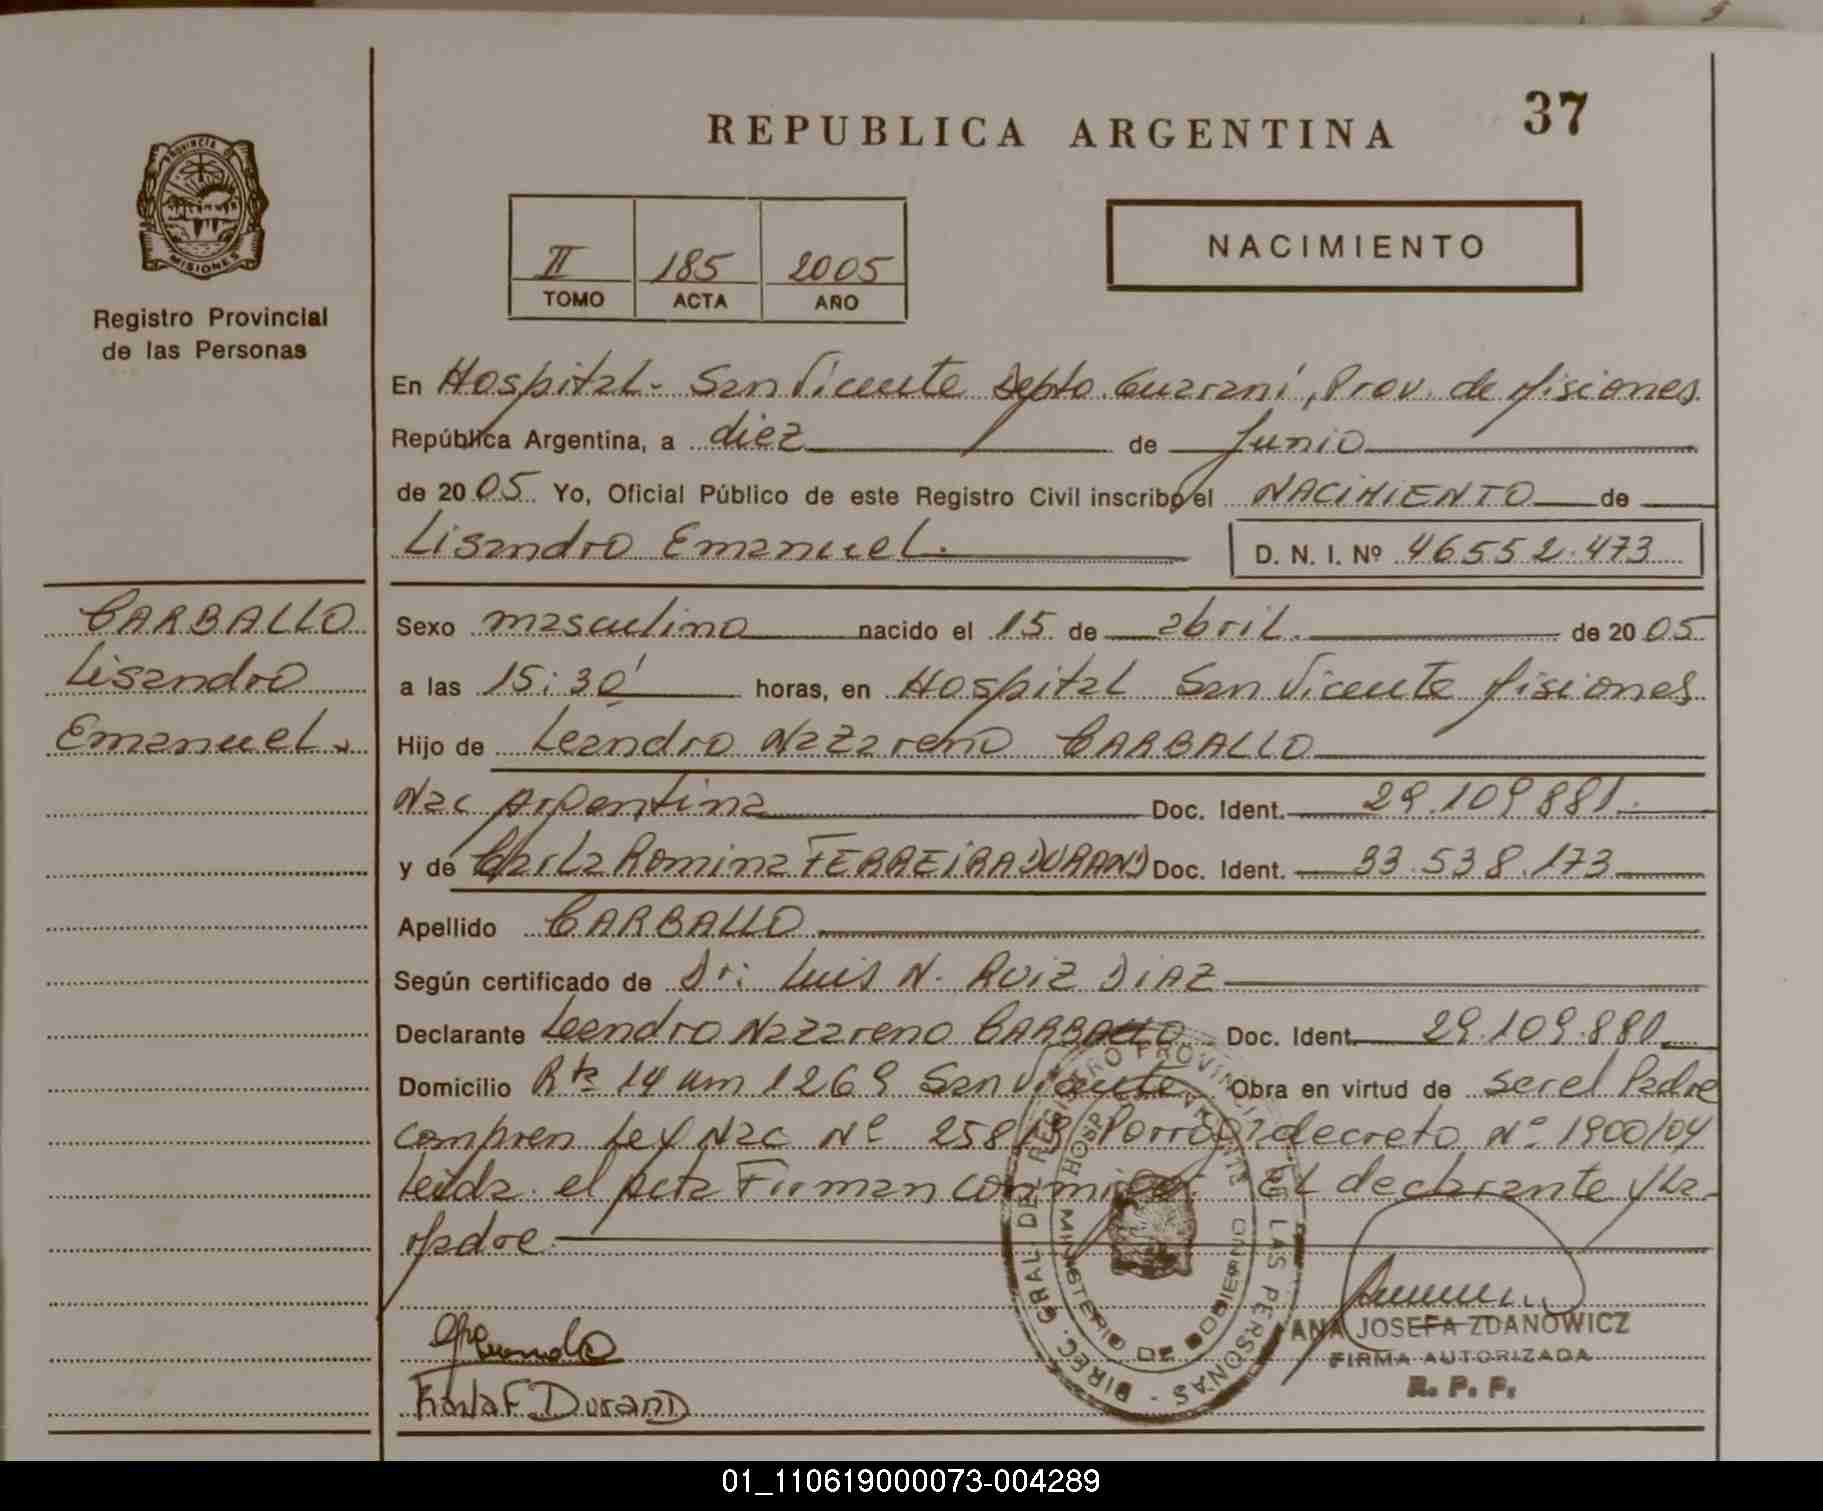 37
REPUBLICA ARGENTINA
PROVINCIA DE
MISIONES
Registro Provincial
de las Personas
NACIMIENTO
II 185 2005
TOMO ACTA AÑO
En Hospital - San Vicente Depto. Guaraní, Prov. de Misiones
República Argentina, a diez de Junio
de 2005 Yo, Oficial Público de este Registro Civil inscribo el NACIMIENTO de
Lisandro Emanuel. D. N. I. Nº 46552.473
CARBALLO
Lisandro
Emanuel
Sexo masculino nacido el 15 de abril. de 2005
a las 15:30' horas, en Hospital San Vicente Misiones
Hijo de Leandro Nazareno CARBALLO
Nac Argentina Doc. Ident. 29.109.881.
y de Carla Romina FERREIRA DURAND Doc. Ident. 33.538.173
Apellido CARBALLO
Según certificado de Dr: Luis N. RUIZ DIAZ
Declarante Leandro Nazareno CARBALLO Doc. Ident. 29.109.880
Domicilio Rta 14 1269 San Vicente Obra en virtud de ser el Padre
Ley Nac Nº decreto Nº 1900/04
Leida el acta Firman conmigo. El declarante y La
Madre
DIREC. GRAL. DE REGISTRO PROVINCIAL DE LAS PERSONAS -
MINISTERIO DE GOBIERNO
Karla F. DuranD
ANA JOSEFA ZDANOWICZ
FIRMA AUTORIZADA
R. P. P.
01_110619000073-004289